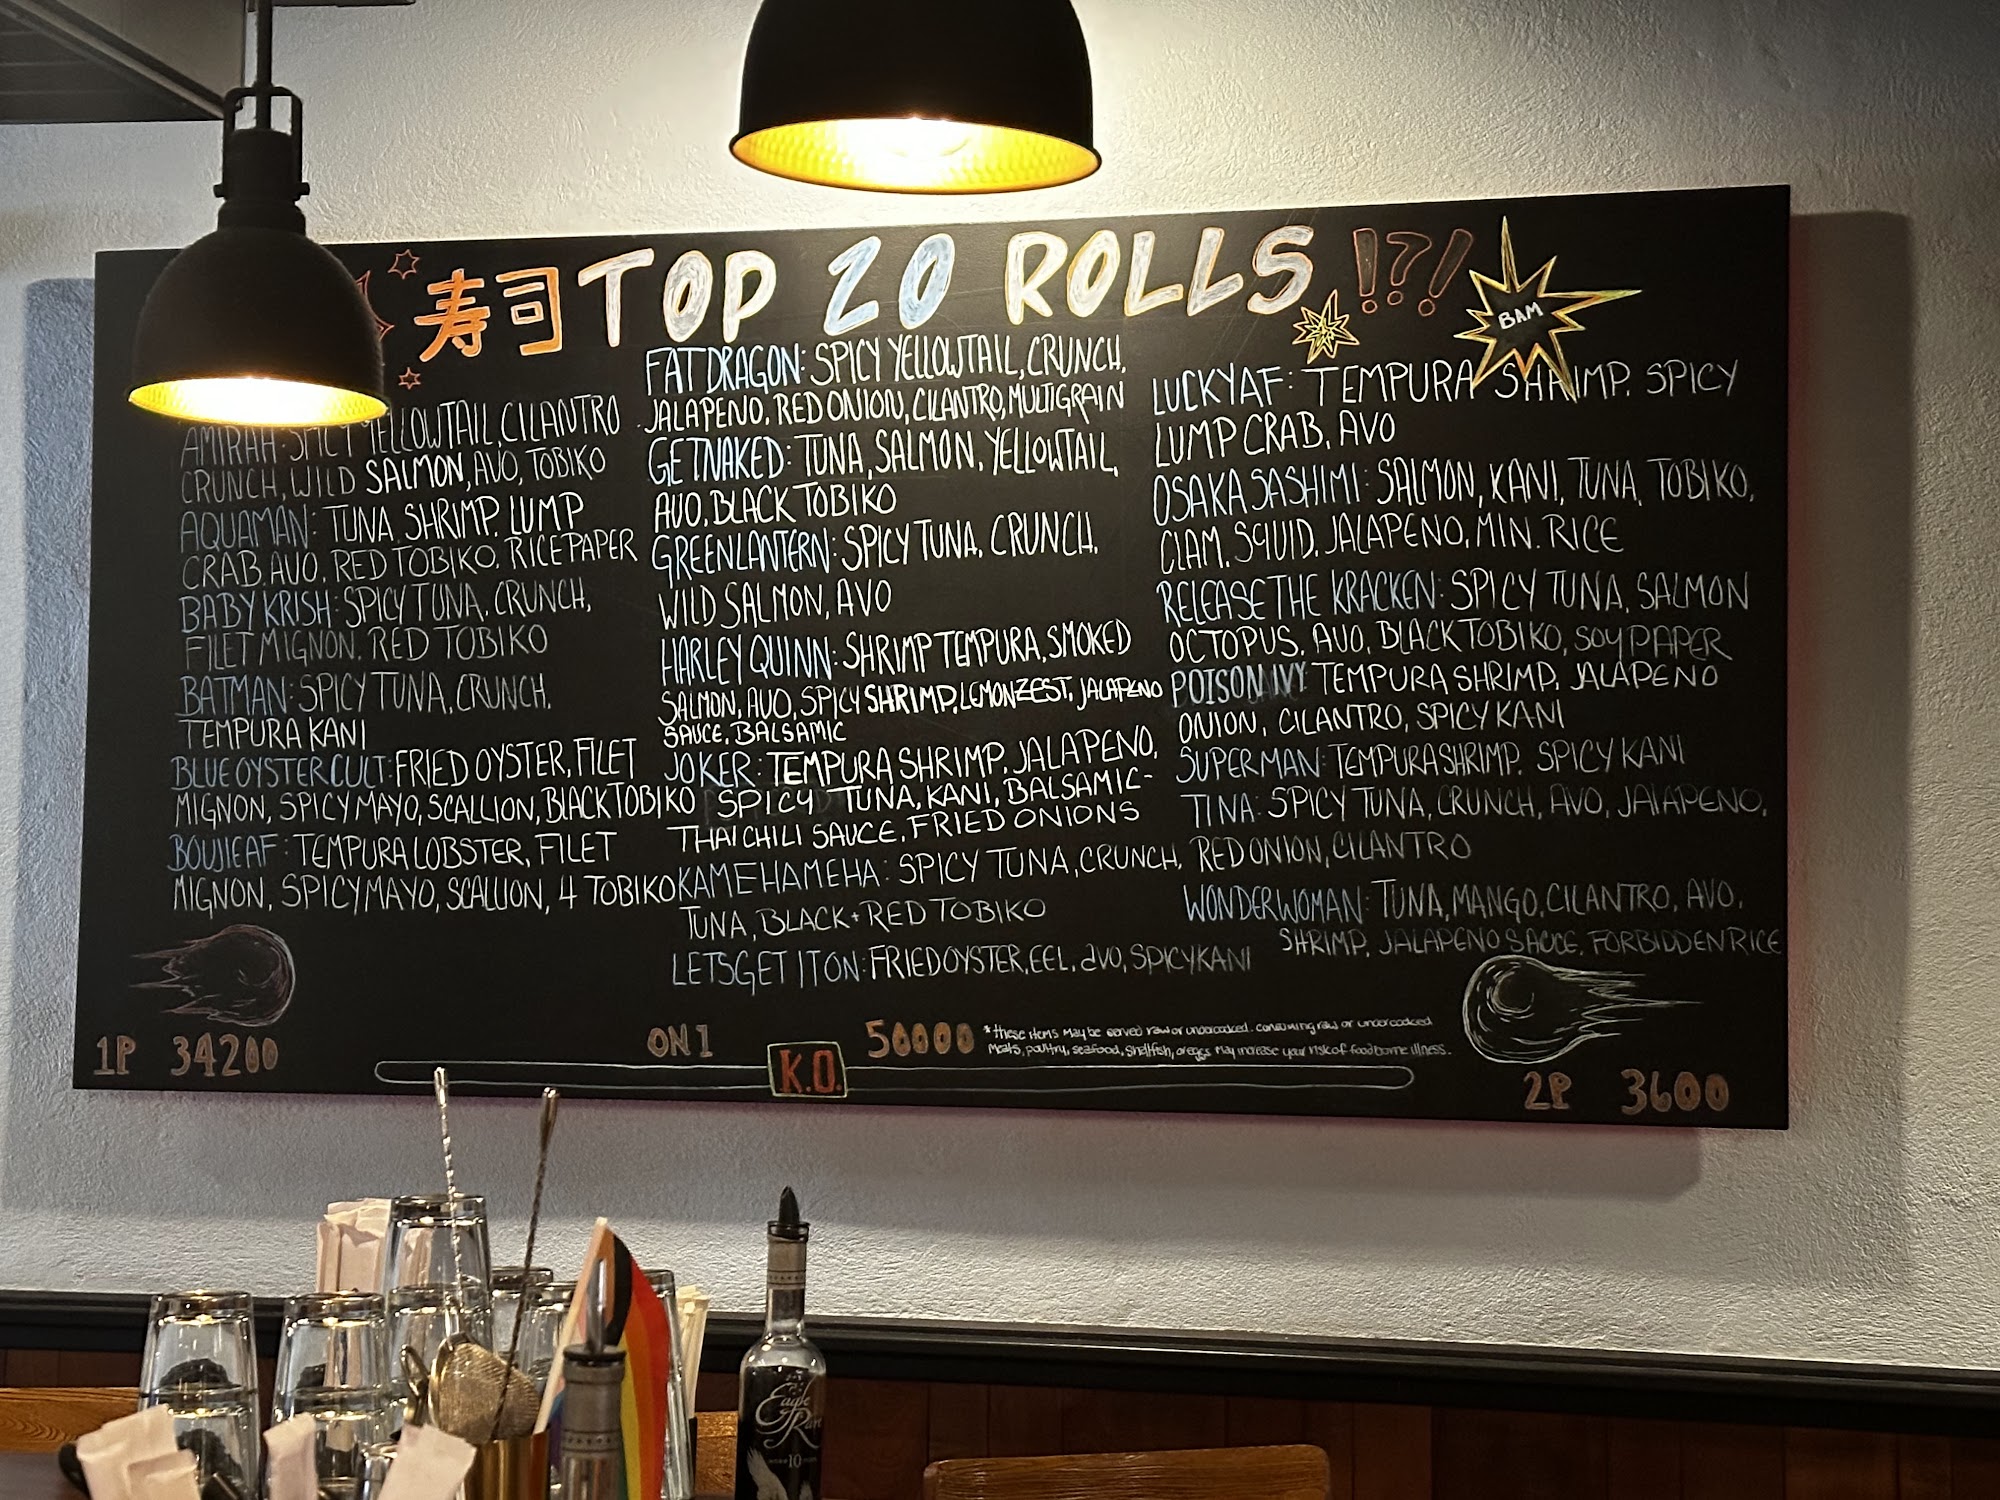 寿司 TOP 20 ROLLS !?!
BAM
AMIRAH: SPICY YELLOWTAIL, CILANTRO
CRUNCH, WILD SALMON, AVO, TOBIKO
AQUAMAN: TUNA, SHRIMP, LUMP
CRAB, AVO, RED TOBIKO, RICE PAPER
BABY KRISH: SPICY TUNA, CRUNCH,
FILET MIGNON, RED TOBIKO
BATMAN: SPICY TUNA, CRUNCH,
TEMPURA KANI
BLUE OYSTER CULT: FRIED OYSTER, FILET
MIGNON, SPICY MAYO, SCALLION, BLACK TOBIKO
BOUJIE AF: TEMPURA LOBSTER, FILET
MIGNON, SPICY MAYO, SCALLION, 4 TOBIKO
FAT DRAGON: SPICY YELLOWTAIL, CRUNCH,
JALAPENO, RED ONION, CILANTRO, MULTIGRAIN
GET NAKED: TUNA, SALMON, YELLOWTAIL,
AVO, BLACK TOBIKO
GREEN LANTERN: SPICY TUNA, CRUNCH,
WILD SALMON, AVO
HARLEY QUINN: SHRIMP TEMPURA, SMOKED
SALMON, AVO, SPICY SHRIMP, LEMON ZEST, JALAPENO
SAUCE, BALSAMIC
JOKER: TEMPURA SHRIMP, JALAPENO,
SPICY TUNA, KANI, BALSAMIC-
THAI CHILI SAUCE, FRIED ONIONS
KAMEHAMEHA: SPICY TUNA, CRUNCH,
TUNA, BLACK + RED TOBIKO
LETS GET IT ON: FRIED OYSTER, EEL, AVO, SPICY KANI
LUCKY AF: TEMPURA SHRIMP, SPICY
LUMP CRAB, AVO
OSAKA SASHIMI: SALMON, KANI, TUNA, TOBIKO,
CLAM, SQUID, JALAPENO, MIN. RICE
RELEASE THE KRACKEN: SPICY TUNA, SALMON
OCTOPUS, AVO, BLACK TOBIKO, SOY PAPER
POISON IVY: TEMPURA SHRIMP, JALAPENO
ONION, CILANTRO, SPICY KANI
SUPERMAN: TEMPURA SHRIMP, SPICY KANI
TINA: SPICY TUNA, CRUNCH, AVO, JALAPENO,
RED ONION, CILANTRO
WONDER WOMAN: TUNA, MANGO, CILANTRO, AVO,
SHRIMP, JALAPENO SAUCE, FORBIDDEN RICE
1P 34200
ON 1
50000
K.O.
*these items may be served raw or undercooked. consuming raw or undercooked
meats, poultry, seafood, shellfish, or eggs may increase your risk of foodborne illness.
2P 3600
Eagle
Rare
10